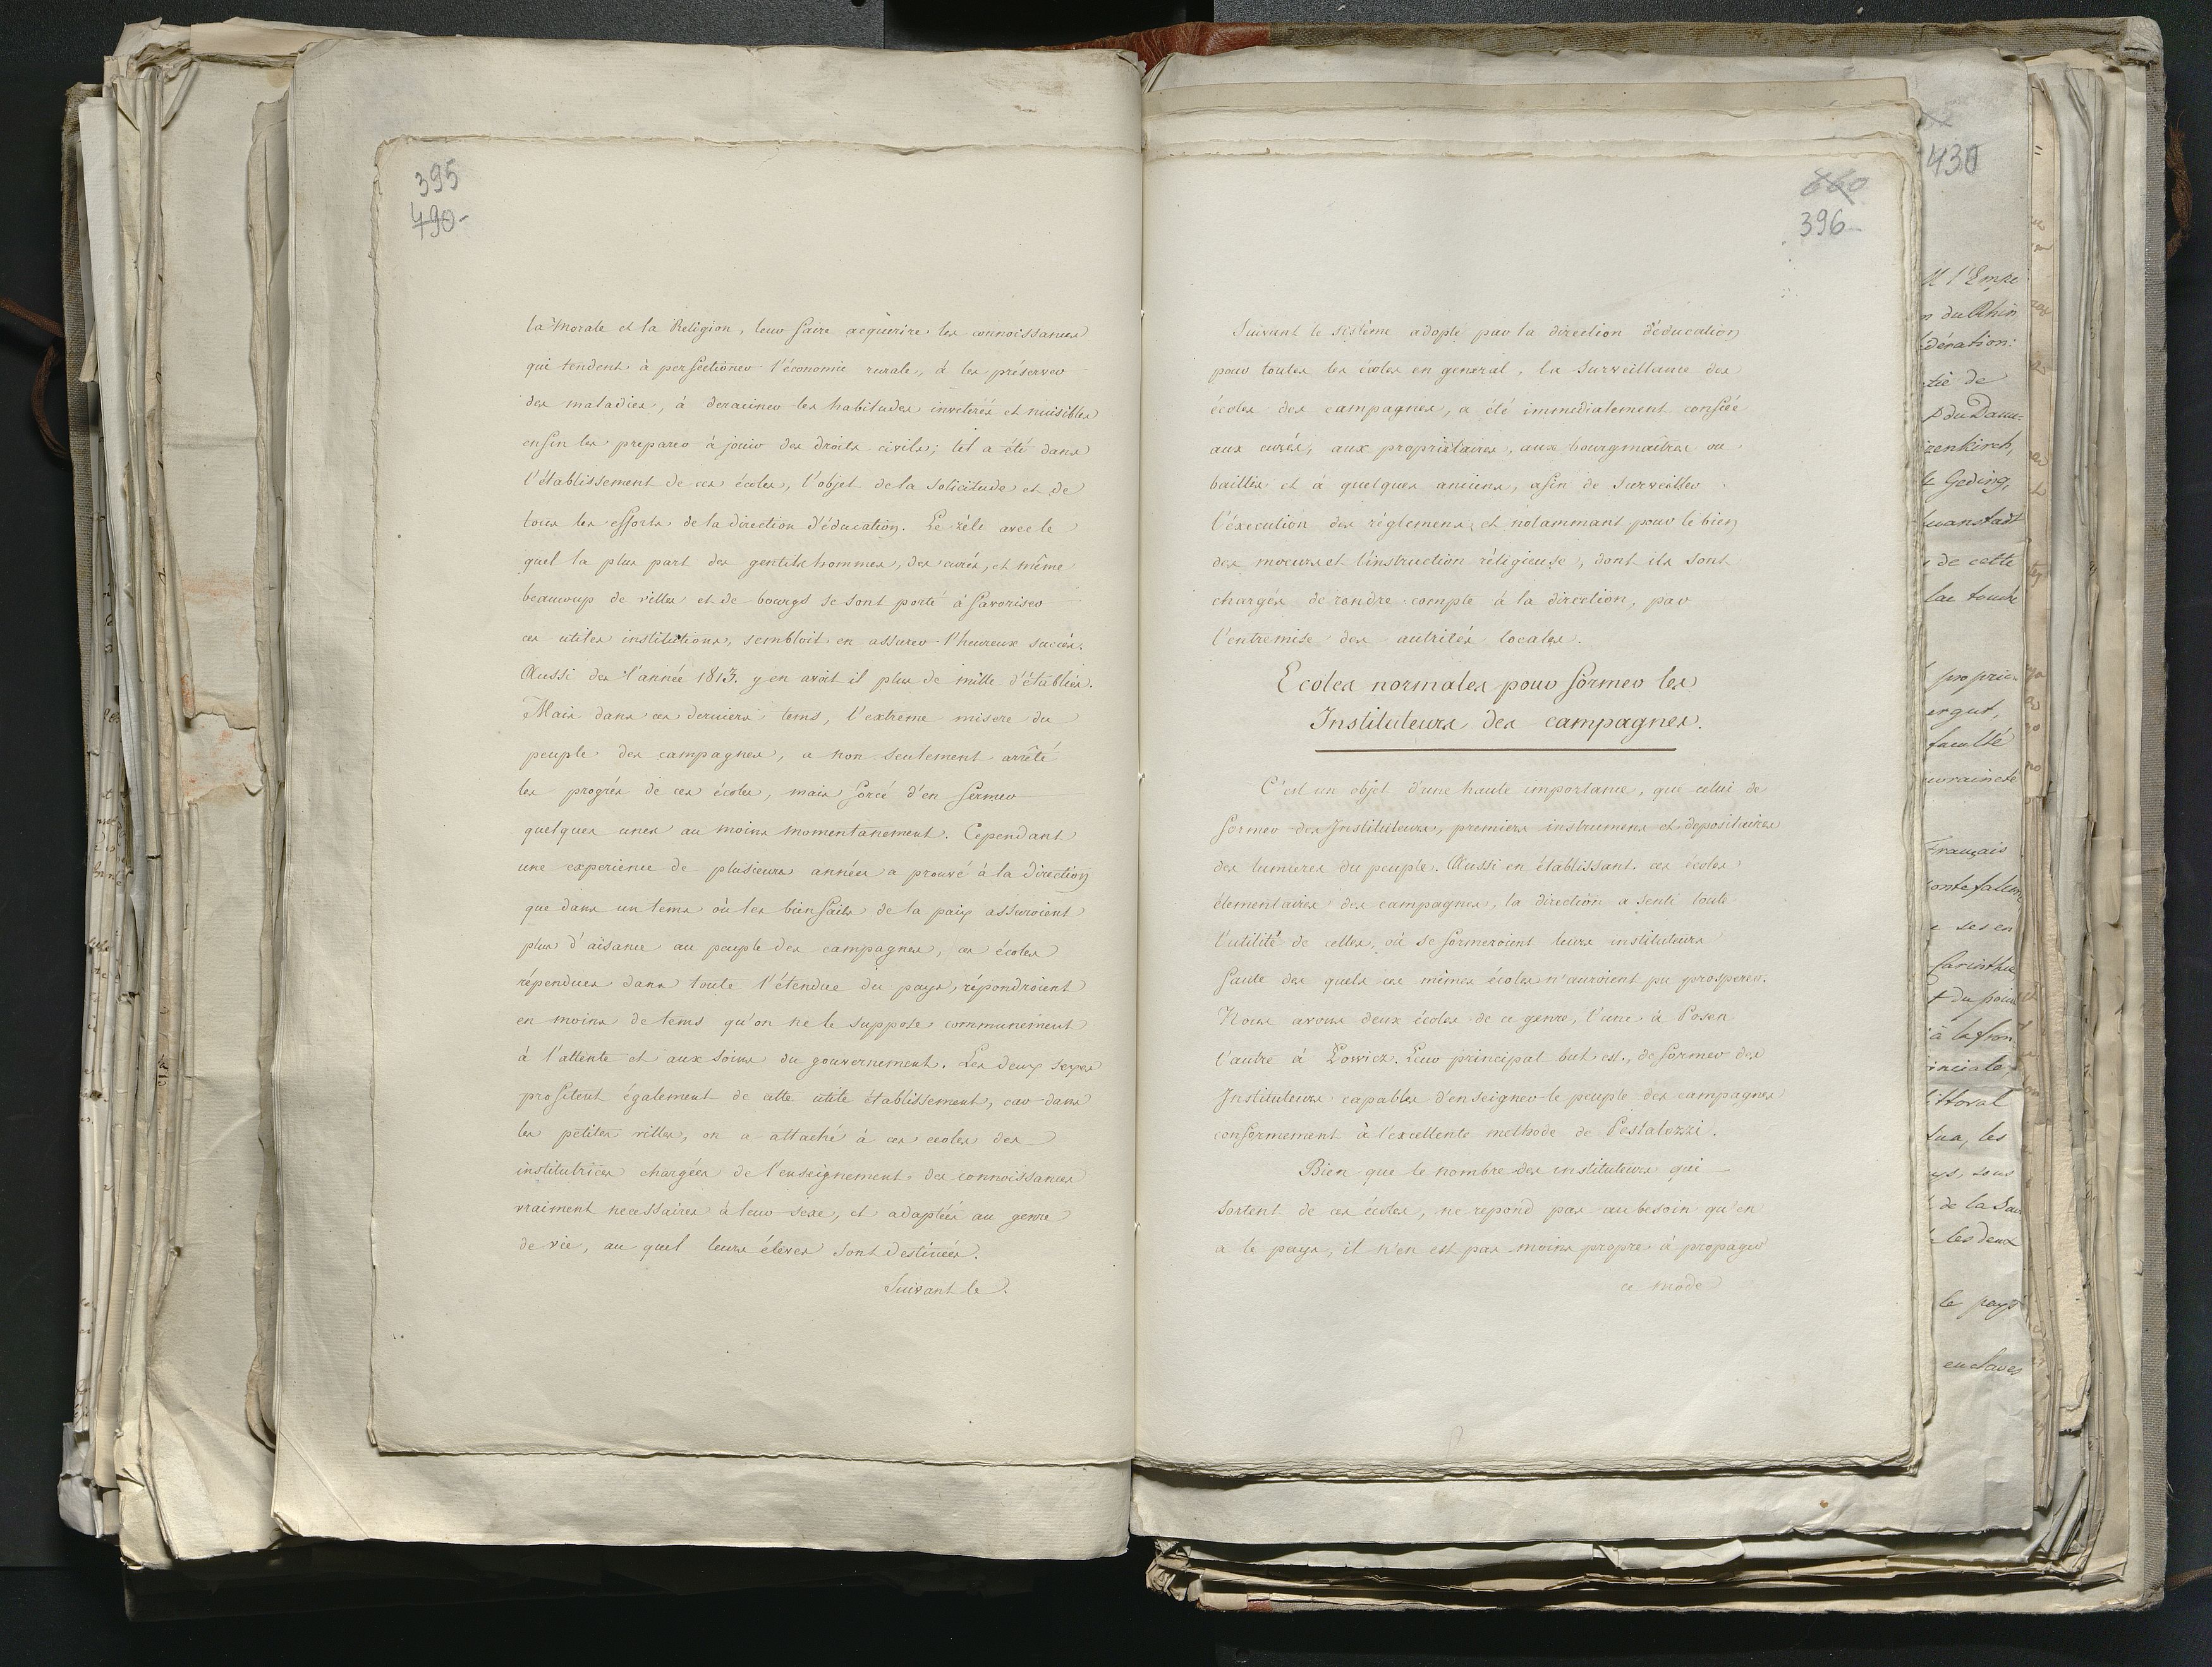 395
490-
la Morale et la Religion, leur faire acquerire les connoissances
qui tendent à perfectioner l'économie rurale, à les préserver
des maladies, à deraciner les habitudes invéterés et nuisibles
enfin les preparer à jouir des droits civils; tel a été dans
l'établissement de ces écoles, l'objet de la solicitude et de
tous les efforts de la direction d'éducation. Le zèle avec le
quel la plus part des gentilshommes, des curés, et même
beaucoup de villes et de bourgs se sont porté à favoriser
ces utiles institutions, sembloit en assurer l'heureux succès.
Aussi des l'année 1813. y en avoit il plus de mille d'établies.
Mais dans ces derniers tems, l'extreme misere du
peuple des campagnes, a non seulement arrêté
les progrés de ces écoles, mais forcé d'en fermer
quelques unes au moins momentanement. Cependant
une experience de plusieurs années a prouvé à la direction
que dans un tems où les bienfaits de la paix assuroient
plus d'aisance au peuple des campagnes, ces écoles
répendues dans toute l'étendue du pays, répondroient
en moins de tems qu'on ne le suppose communement
à l'attente et aux soins du gouvernement. Les deux sexes
profitent également de cette utile établissement, car dans
les petites villes, on a attaché à ces ecoles des
institutrices chargées de l'enseignement des connoissances
vraiment necessaires à leur sexe, et adaptées au genre
de vie, au quel leurs éleves sont destinées.
Suivant le
660
396-
Suivant le sistème adopté par la direction d'éducation
pour toutes les écoles en general, la surveillance des
écoles des campagnes, a été immediatement confiée
aux curés, aux propriétaires, aux bourgmaitres ou
baillis et à quelques anciens, afin de surveiller
l'éxecution des réglemens, et notammant pour le bien
des moeurs et l'instruction réligieuse, dont ils sont
chargés de rendre compte à la direction, par
l'entremise des autrités locales.
Ecoles normales pour former les
Instituteurs des campagnes.
C'est un objet d'une haute importance, que celui de
former des Instituteurs, premiers instrumens et depositaires
des lumieres du peuple. Aussi en établissant ces écoles
élementaires des campagnes, la direction a senti toute
l'utilité de celles, où se formeroient leurs instituteurs
faute des quels ces mêmes écoles n'auroient pu prosperer.
Nous avons deux écoles de ce genre, l'une à Posen
l'autre à Lowicz. Leur principal but est, de former des
Instituteurs capables d'enseigner le peuple des campagnes
confermement à l'excellente methode de Pestalozzi.
Bien que le nombre des instituteurs qui
sortent de ces écoles, ne repond pas au besoin qu'en
a le pays, il n'en est pas moins propre à propager
ce mode
430
l'Empe
du Rhin
dération:
tié de
du Danu=
zenkirch,
Geding,
de cette
lac touche
proprié
ergut,
faculté
Français
ses en
Carinthie
du poin
à la fron
inciale,
littoral
les
sous
de la Sau
les deux
le pays
enclaves